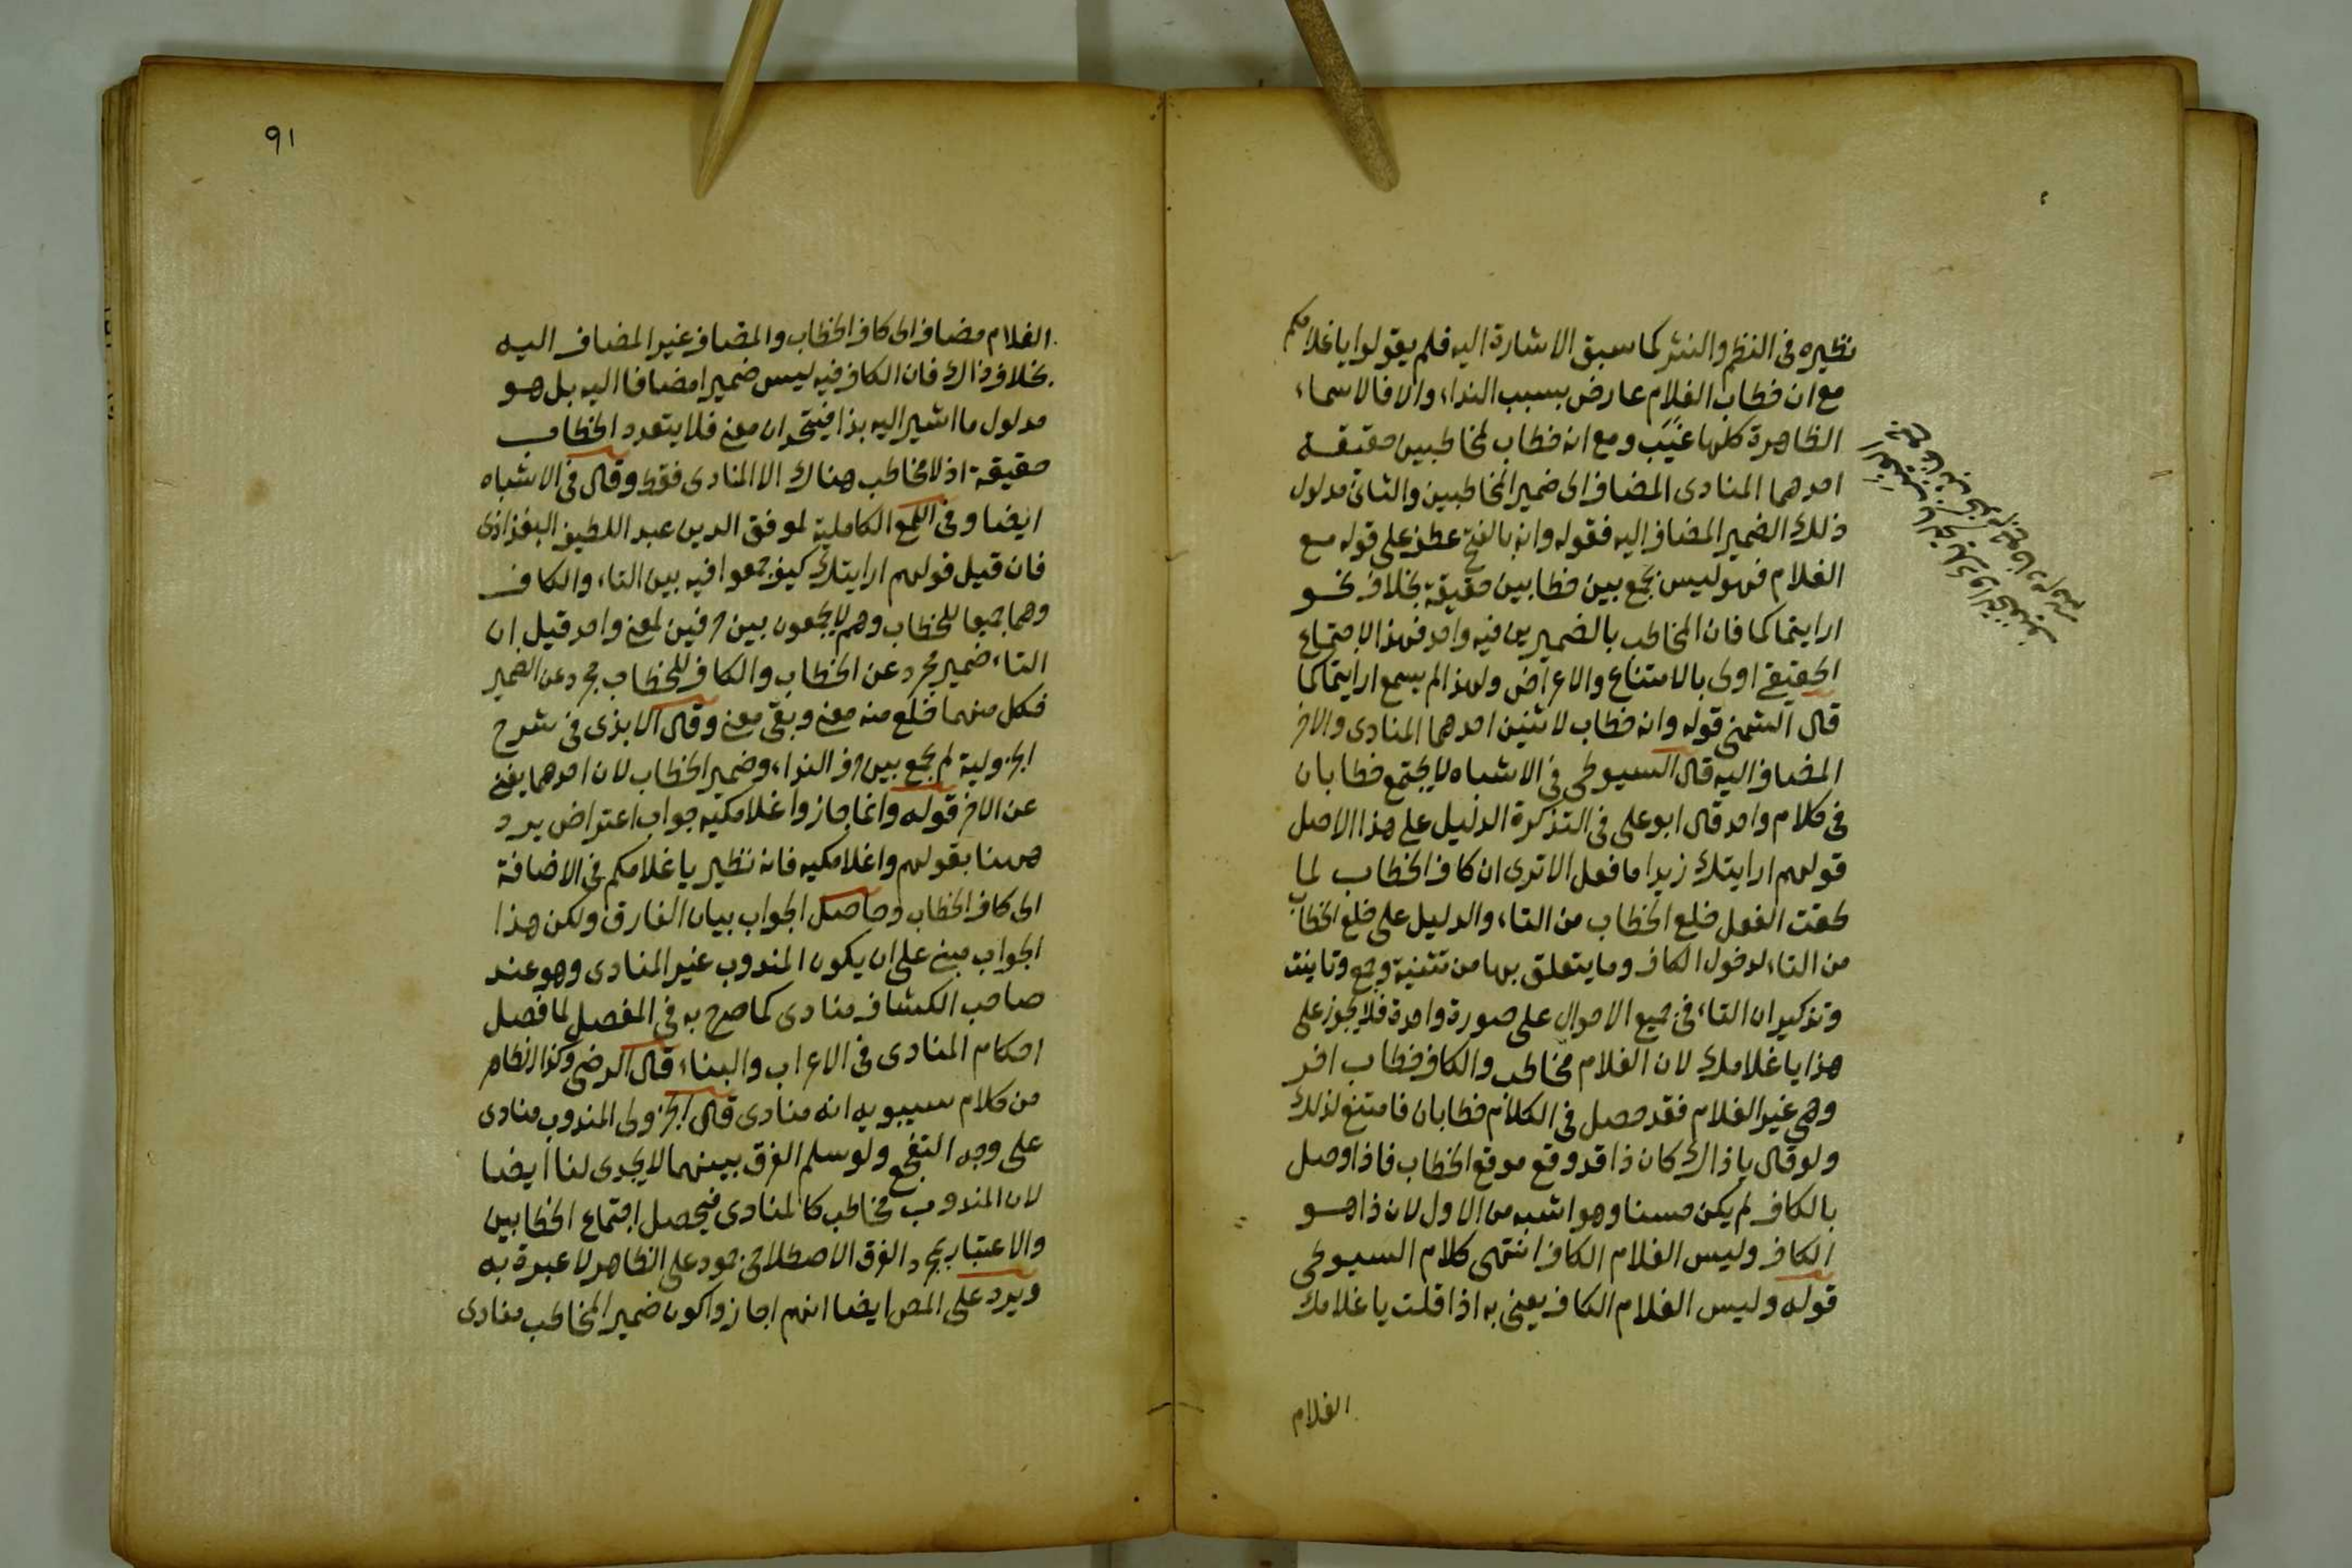 نظيره فى النظم والنثر كما سبق الاشارة اليه فلم يقولوا يا غلامكم
مع ان خطاب الغلام عارض بسبب النداء والا فالاسماء
الظاهرة كلها غيَب ومع انه خطاب لمخاطبين حقيقة
احدهما المنادى المضاف الى ضمير المخاطبين والثانى مدلول
ذلك الضمير المضاف اليه فقوله وانه بالفتح عطف على قوله مع
الغلام فهو ليس بجمع بين خطابين حقيقة بخلاف نحو
ارايتما كما فان المخاطب بالضميرين فيه واحد فهذا الاجتماع
الحقيقى اولى بالامتناع والاعراض ولهذا لم يسمع ارايتما كما
قال الشمنى قوله وانه خطاب لاثنين احدهما المنادى والاخر
المضاف اليه قال السيوطى فى الاشباه لا يجتمع خطابان
فى كلام واحد قال ابو على فى التذكرة الدليل على هذا الاصل
قولهم ارايتك زيدا ما فعل الا ترى ان كاف الخطاب لما
لحقت الفعل خلع الخطاب من التاء والدليل على خلع الخطاب
من التاء لدخول الكاف وما يتعلق بها من تثنية وجمع وتانيث
وتذكير ان التاء فى جميع الاحوال على صورة واحدة فلا يجوز على
هذا يا غلامك لان الغلام مخاطب والكاف خطاب اخر
وهى غير الغلام فقد حصل فى الكلام خطابان فامتنع لذلك
ولو قال يا ذاك كان ذا قد وقع موقع الخطاب فاذا وصل
بالكاف لم يكن حسنا وهو اشبه من الاول لان ذا هو
الكاف وليس الغلام الكاف انتهى كلام السيوطى
قوله وليس الغلام الكاف يعنى به اذا قلت يا غلامك
الغلام
٩١
الغلام مضاف الى كاف الخطاب والمضاف غير المضاف اليه
بخلاف ذاك فان الكاف فيه ليس ضميرا مضافا اليه بل هو
مدلول ما اشير اليه بذا فيتحدان معنى فلا يتعدد الخطاب
حقيقة اذ لا مخاطب هناك الا المنادى فقط وقال فى الاشباه
ايضا وفى اللمع الكاملية لموفق الدين عبد اللطيف البغداذى
فان قيل قولهم ارايتك كيف جمعوا فيه بين التاء والكاف
وهما جميعا للخطاب وهم لا يجمعون بين حرفين لمعنى واحد قيل ان
التاء ضمير مجرد عن الخطاب والكاف للخطاب مجرد عن الضمير
فكل منهما خلع منه معنى وبقى معنى وقال الابذى فى شرح
الجزولية لم يجمع بين حرف النداء وضمير الخطاب لان احدهما يغنى
عن الاخر قوله وانما جاز واغلامكيه جواب اعتراض يرد
ههنا بقولهم واغلامكيه فانه نظير يا غلامكم فى الاضافة
الى كاف الخطاب وحاصل الجواب بيان الفارق ولكن هذا
الجواب مبنى على ان يكون المندوب غير المنادى وهو عند
صاحب الكشاف منادى كما صرح به فى المفصل لما فصل
احكام المنادى فى الاعراب والبناء قال الرضى وكذا الظاهر
من كلام سيبويه انه منادى قال الجزولى المندوب منادى
على وجه التفجع ولو سلم الفرق بينهما لا يجدى لنا ايضا
لان المندوب مخاطب كالمنادى فيحصل اجتماع الخطابين
والاعتبار بمجرد الفرق الاصطلاحى جمود على الظاهر لا عبرة به
ويرد على المص ايضا انهم اجازوا كون ضمير المخاطب منادى